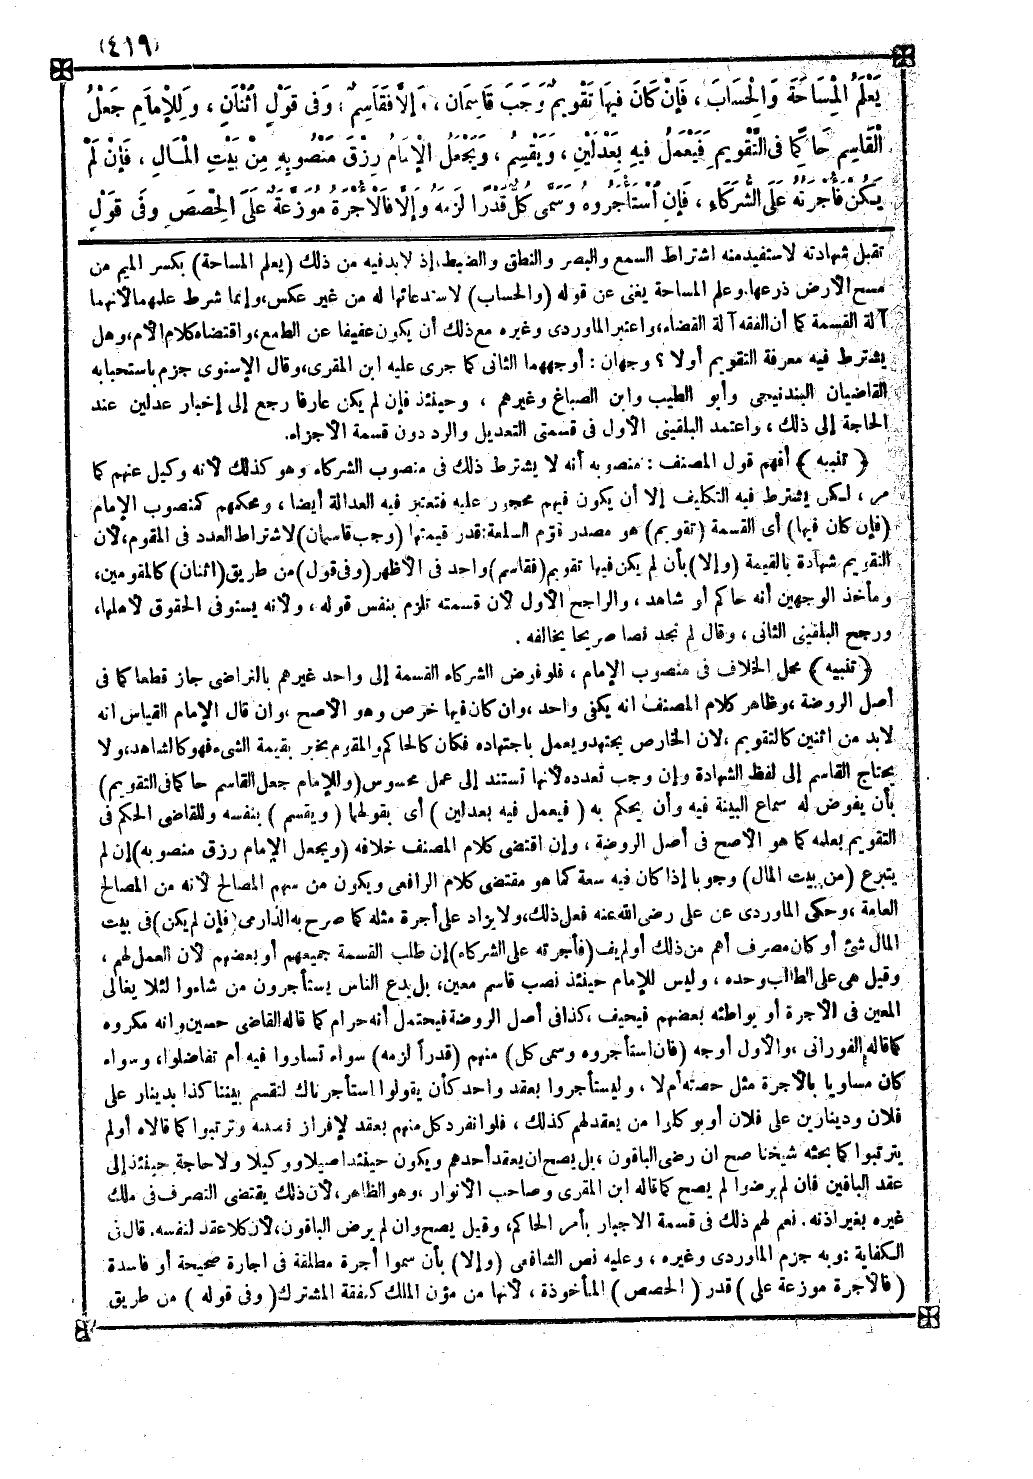 (٤١٩)
يَعْلَمُ الْمِسَاحَةَ وَالْحِسَابَ ، فَإِنْ كَانَ فِيهَا تَقْوِيمٌ وَجَبَ قَاسِمَانِ ، وَإِلَّا فَقَاسِمٌ ، وَفِى قَوْلٍ اثْنَانِ ، وَلِلْإِمَامِ جَعْلُ
الْقَاسِمِ حَاكِمًا فِى التَّقْوِيمِ فَيَعْمَلُ فِيهِ بِعَدْلَيْنِ ، وَيَقْسِمُ ، وَيَجْعَلُ الْإِمَامُ رِزْقَ مَنْصُوبِهِ مِنْ بَيْتِ الْمَالِ ، فَإِنْ لَمْ
يَكُنْ فَأُجْرَتُهُ عَلَى الشُّرَكَاءِ ، فَإِنِ اسْتَأْجَرُوهُ وَسَمَّى كُلٌّ قَدْرًا لَزِمَهُ وَإِلَّا فَالْأُجْرَةُ مُوَزَّعَةٌ عَلَى الْحِصَصِ وَفِى قَوْلٍ
تقبل شهادته لاستفيد منه اشتراط السمع والبصر والنطق والضبط، إذ لابد فيه من ذلك (يعلم المساحة) بكسر الميم من
مسح الأرض ذرعها، وعلم المساحة يغنى عن قوله (والحساب) لاستدعائها له من غير عكس، وإنما شرط علمهما لأنهما
آلة القسمة كما أن الفقه آلة القضاء، واعتبر الماوردى وغيره مع ذلك أن يكون عفيفا عن الطمع، واقتضاه كلام الأم، وهل
يشترط فيه معرفة التقويم أولا ؟ وجهان : أوجههما الثانى كما جرى عليه ابن المقرى، وقال الإسنوى جزم باستحبابه
القاضيان البندنيجى وأبو الطيب وابن الصباغ وغيرهم ، وحينئذ فإن لم يكن عارفا رجع إلى إخبار عدلين عند
الحاجة إلى ذلك ، واعتمد البلقينى الأول فى قسمتى التعديل والرد دون قسمة الأجزاء.
﴿ تنبيه ﴾ أفهم قول المصنف : منصوبه أنه لا يشترط ذلك فى منصوب الشركاء وهو كذلك لأنه وكيل عنهم كما
مر ، لكن يشترط فيه التكليف إلا أن يكون فيهم محجور عليه فتعتبر فيه العدالة أيضا ، ومحكمهم كمنصوب الإمام
(فإن كان فيها) أى القسمة (تقويم) هو مصدر قوّم السلعة : قدر قيمتها (وجب قاسمان) لاشتراط العدد فى المقوم، لأن
التقويم شهادة بالقيمة (وإلا) بأن لم يكن فيها تقويم (فقاسم) واحد فى الأظهر (وفى قول) من طريق (اثنان) كالمقومين،
ومأخذ الوجهين أنه حاكم أو شاهد ، والراجح الأول لأن قسمته تلزم بنفس قوله ، ولأنه يستوفى الحقوق لأهلها،
ورجح البلقينى الثانى ، وقال لم نجد نصا صريحا يخالفه .
﴿ تنبيه ﴾ محل الخلاف فى منصوب الإمام ، فلو فوض الشركاء القسمة إلى واحد غيرهم بالتراضى جاز قطعا كما فى
أصل الروضة ، وظاهر كلام المصنف انه يكفى واحد ، وان كان فيها خرص وهو الأصح ، وان قال الإمام القياس انه
لابد من اثنين كالتقويم ، لأن الخارص يجتهد ويعمل باجتهاده فكان كالحاكم والمقوم يخبر بقيمة الشىء فهو كالشاهد، ولا
يحتاج القاسم إلى لفظ الشهادة وإن وجب تعدده لأنها تستند إلى عمل محسوس (وللإمام جعل القاسم حاكما فى التقويم)
بأن يفوض له سماع البينة فيه وأن يحكم به ( فيعمل فيه بعدلين ) أى بقولهما ( ويقسم ) بنفسه وللقاضى الحكم فى
التقويم بعلمه كما هو الأصح فى أصل الروضة ، وإن اقتضى كلام المصنف خلافه (ويجعل الإمام رزق منصوبه) إن لم
يتبرع (من بيت المال) وجوبا إذا كان فيه سعة كما هو مقتضى كلام الرافعى ويكون من سهم المصالح لأنه من المصالح
العامة ، وحكى الماوردى عن على رضى الله عنه فعل ذلك، ولا يزاد على أجرة مثله كما صرح به الدارمى (فإن لم يكن) فى بيت
المال شئ أو كان مصرف أهم من ذلك أو لم يف (فأجرته على الشركاء) إن طلب القسمة جميعهم أو بعضهم لأن العمل لهم ،
وقيل هى على الطالب وحده ، وليس للإمام حينئذ نصب قاسم معين، بل يدع الناس يستأجرون من شاءوا لئلا يغالى
المعين فى الأجرة أو يواطئه بعضهم فيحيف ، كذا فى أصل الروضة فيحتمل أنه حرام كما قاله القاضى حسين وانه مكروه
كما قاله الفورانى ، والأول أوجه (فان استأجروه وسمى كل) منهم (قدرا لزمه) سواء تساروا فيه أم تفاضلوا، وسواء
كان مساويا بالأجرة مثل حصته أم لا ، وليستأجروا بعقد واحد كأن يقولوا استأجرناك لتقسم بيننا كذا بدينار على
فلان ودينارين على فلان أو يوكلوا من يعقد لهم كذلك ، فلو انفرد كل منهم بعقد لإفراز نصيبه وترتبوا كما قالاه أو لم
يترتبوا كما بحثه شيخنا صح ان رضى الباقون ، بل يصح ان يعقد أحدهم ويكون حينئذ اصيلا ووكيلا ولا حاجة حينئذ إلى
عقد الباقين فان لم يرضوا لم يصح كما قاله ابن المقرى وصاحب الأنوار ، وهو الظاهر، لأن ذلك يقتضى التصرف فى ملك
غيره بغير اذنه . نعم لهم ذلك فى قسمة الاجبار بأمر الحاكم، وقيل يصح وان لم يرض الباقون، لأن كلا عقد لنفسه. قال فى
الكفاية : وبه جزم الماوردى وغيره ، وعليه نص الشافعى (وإلا) بأن سموا أجرة مطلقة فى اجارة صحيحة أو فاسدة
( فالأجرة موزعة على ) قدر ( الحصص ) المأخوذة ، لأنها من مؤن الملك كنفقة المشترك ( وفى قوله ) من طريق